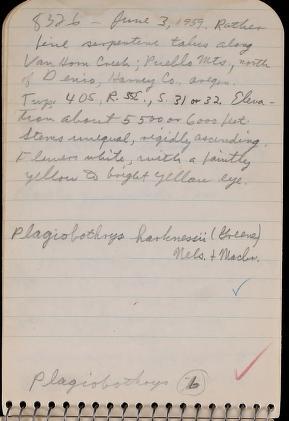 8326 - June 3, 1959. Rather
fine serpentine talus along
Van Horn Creek; Pueblo Mts., north
of Denio, Harney Co. Oregon.
Twp. 40S, R. 35E., S. 31 or 32. Eleva-
tion about 5500 or 6000 feet.
Stems unequal, rigidly ascending.
Flowers white, with a faintly
yellow to bright yellow eye.
Plagiobothrys harknessii (Greene)
Nels. & Macbr.
Plagiobothrys 16